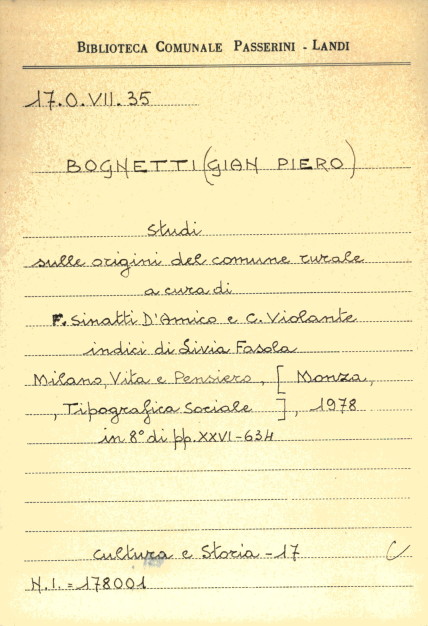 BIBLIOTECA COMUNALE PASSERINI - LANDI
17.O.VII.35
BOGNETTI (GIAN PIERO)
Studi
sulle origini del comune rurale
a cura di
F. Sinatti D'Amico e C. Violante
indici di Livia Fasola
Milano, Vita e Pensiero, [Monza,
, Tipografica Sociale ], 1978
in 8° di pp. XXVI-634
Cultura e Storia - 17 C
N.I. = 178001